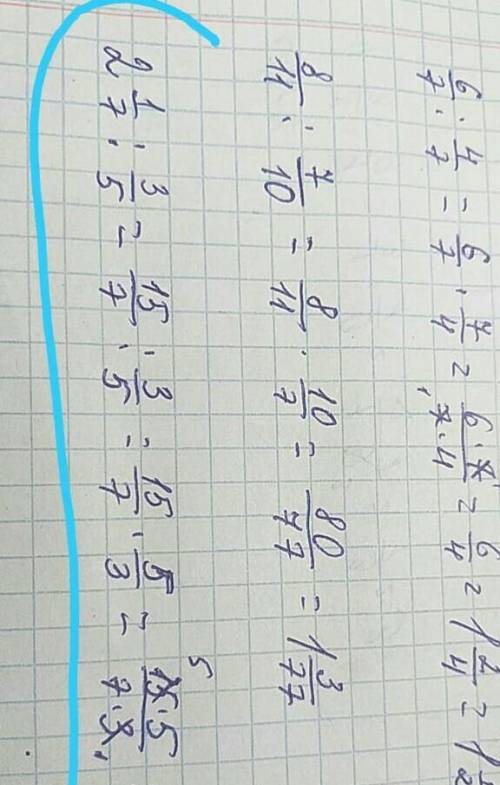 6/7 : 4/7 = 6/7 · 7/4 = 6·7/7·4 = 6/4 = 1 2/4 = 1 1/2
8/11 : 7/10 = 8/11 · 10/7 = 80/77 = 1 3/77
2 1/7 : 3/5 = 15/7 : 3/5 = 15/7 · 5/3 = 15·5/7·3 5 1